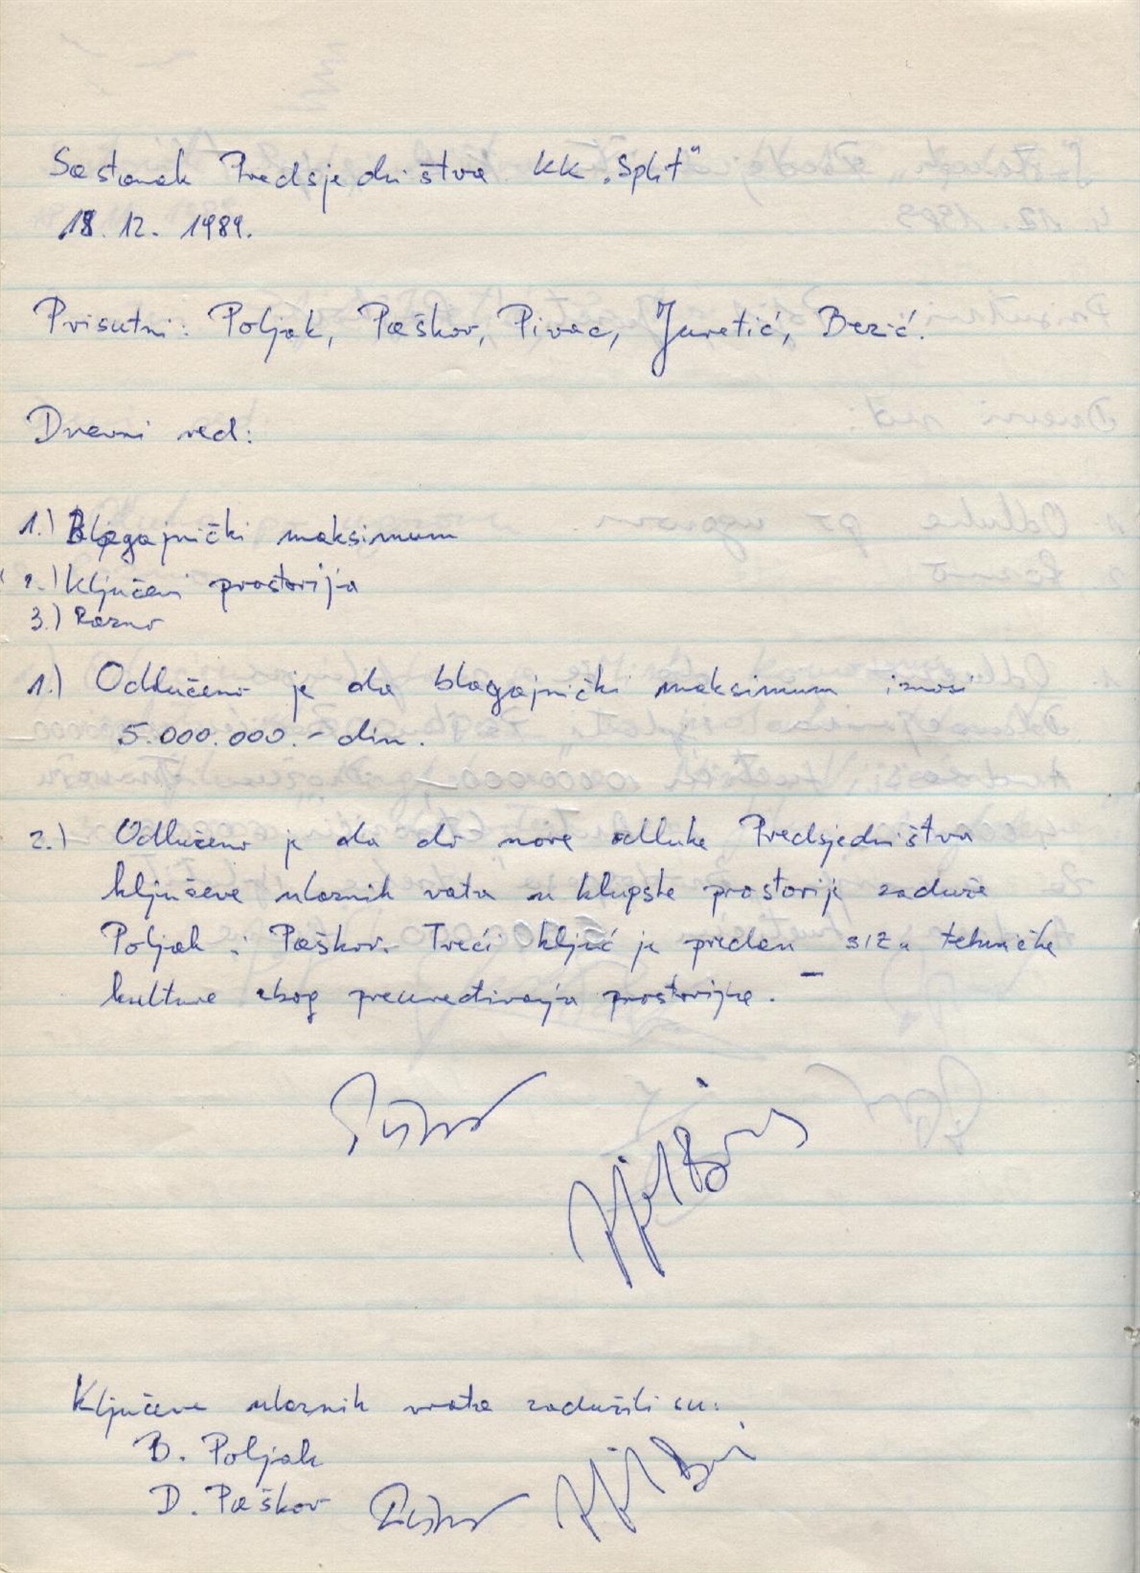 Sastanak Predsjedništva KK „Split"
18. 12. 1989.
Prisutni: Poljak, Paškov, Pivac, Juretić, Bezić.
Dnevni red:
1.) Blagajnički maksimum
2.) Ključevi prostorija
3.) Razno
1.) Odlučeno je da blagajnički maksimum iznosi
5.000.000.- din.
2.) Odlučeno je da do nove odluke Predsjedništva
ključeve ulaznih vrata u klupske prostorije zaduže
Poljak i Paškov. Treći ključ je predan SIZ-u tehničke
kulture zbog preuređivanja prostorije.
Ključeve ulaznih vrata zadužili su:
B. Poljak
D. Paškov